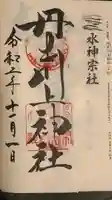 水神宗社
丹生川上神社
令和二年十一月一日